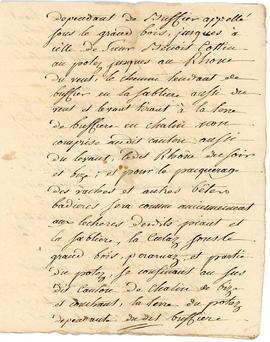 dependant de Buffier appellé
sous le grand bois, jusques à
celle de Sieur Benoit
au potez jusques au Rhône
du vent, le chemin tendant de
buffier en la sablière aussi du
vent et levant tirant à la terre
de buffiere en chalin non
comprise audit cantou aussi
du levant, ledit Rhône de soir
et bize; et pour le pacquerage
des vaches et autres bêtes
sera comme anciennement
aux lecheres dendit et
la sablière, la sous le
grand bois, et partie
du potez, se confinant au sus
dit cantou de chalin de bize
et couchant, la terre du potez
dependante de buffiere